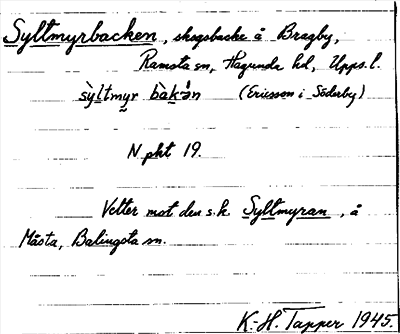 Syltmyrbacken, skogsbacke å Bragby,
Ramsta sn, Hagunda hd, Upps. l.
sỳltmyr bàkån (Ericsson i Söderby)
N pkt 19.
Vetter mot den s.k. Syltmyran, å
Måsta, Balingsta sn.
K.-H. Tapper 1945.